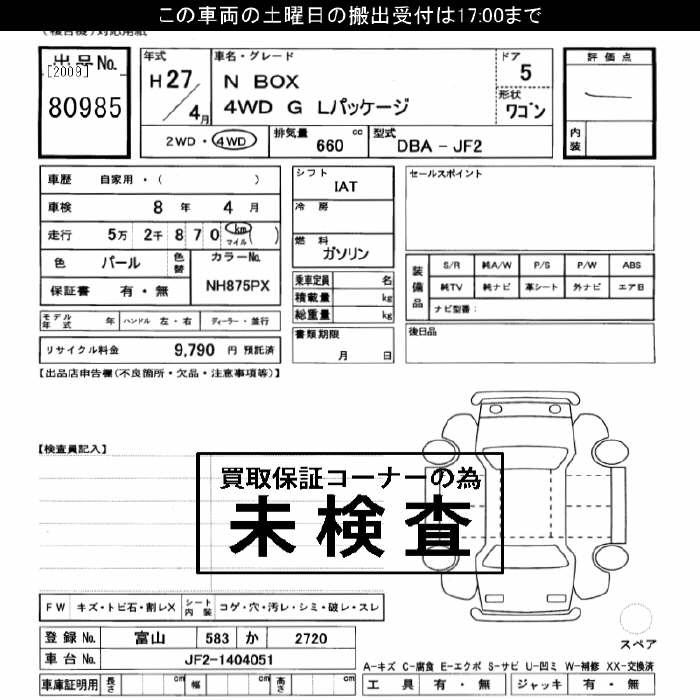 この車両の土曜日の搬出受付は17:00まで
出品No.
[2009]
80985
年式
H27/4月
車名・グレード
N BOX
4WD G Lパッケージ
ドア
5
形状
ワゴン
評価点
内装
2WD・4WD
排気量 660 cc
型式 DBA-JF2
車歴 自家用・( )
車検 8年 4月
走行 5万 2千 8 7 0 km マイル ( )
色 パール 色替
カラーNo.
NH875PX
保証書 有・無
シフト
IAT
冷房
燃料
ガソリン
乗車定員 名
積載量 kg
総重量 kg
書類期限
月 日
セールスポイント
装備品
S/R 純A/W P/S P/W ABS
純TV 純ナビ 革シート 外ナビ エアB
ナビ型番:
後日品
モデル年式 年 ハンドル 左・右 ディーラー・並行
リサイクル料金 9,790 円 預託済
【出品店申告欄(不良箇所・欠品・注意事項等)】
【検査員記入】
買取保証コーナーの為
未検査
FW キズ・トビ石・割レX シート内装 コゲ・穴・汚レ・シミ・破レ・スレ
登録No. 富山 583 か 2720
車台No. JF2-1404051
車庫証明用 長さ cm 幅 cm 高さ cm
スペア
A-キズ C-腐食 E-エクボ S-サビ U-凹ミ W-補修 XX-交換済
工具 有・無 ジャッキ 有・無